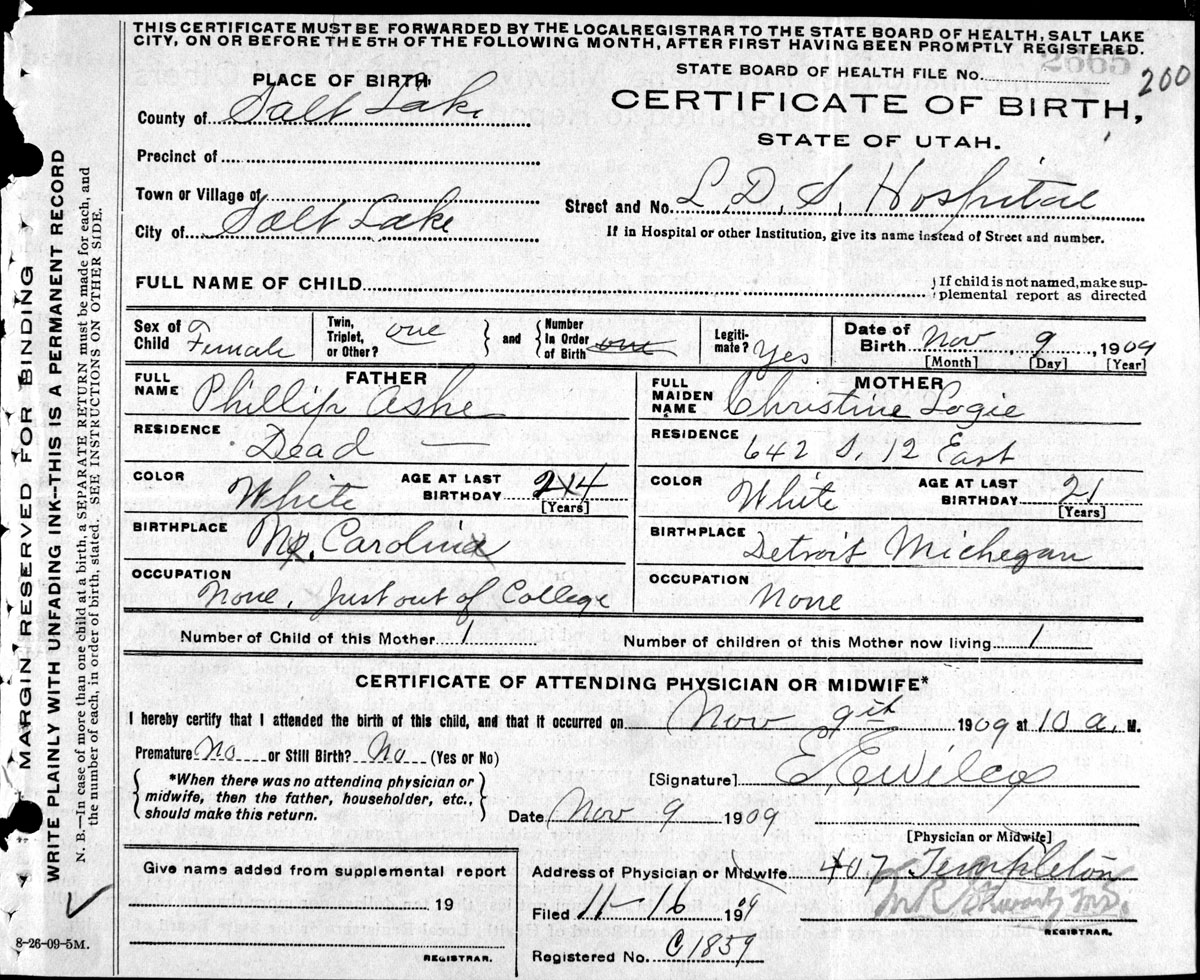 THIS CERTIFICATE MUST BE FORWARDED BY THE LOCAL REGISTRAR TO THE STATE BOARD OF HEALTH, SALT LAKE
CITY, ON OR BEFORE THE 5TH OF THE FOLLOWING MONTH, AFTER FIRST HAVING BEEN PROMPTLY REGISTERED.
STATE BOARD OF HEALTH FILE No. 200
2665
PLACE OF BIRTH
CERTIFICATE OF BIRTH,
STATE OF UTAH.
County of Salt Lake
Precinct of
Town or Village of
City of Salt Lake
Street and No. L. D. S. Hospital
If in Hospital or other Institution, give its name instead of Street and number.
FULL NAME OF CHILD
} If child is not named, make sup-
plemental report as directed
Sex of Child Female
Twin, Triplet, or Other? one
} and {
Number In Order of Birth one
Legiti-mate? Yes
Date of Birth Nov 9, 1909
[Month] [Day] [Year]
FATHER
FULL NAME Phillip Ashe
RESIDENCE Dead —
COLOR White
AGE AT LAST BIRTHDAY 24
[Years]
BIRTHPLACE N. Carolina
OCCUPATION None. Just out of College
MOTHER
FULL MAIDEN NAME Christine Logie
RESIDENCE 642 S. 12 East
COLOR White
AGE AT LAST BIRTHDAY 21
[Years]
BIRTHPLACE Detroit Michegan
OCCUPATION None
Number of Child of this Mother 1
Number of children of this Mother now living 1
CERTIFICATE OF ATTENDING PHYSICIAN OR MIDWIFE*
I hereby certify that I attended the birth of this child, and that it occurred on Nov 9th 1909 at 10 a. M.
Premature No or Still Birth? No (Yes or No)
{ *When there was no attending physician or
midwife, then the father, householder, etc.,
should make this return. }
[Signature] E. E. Wilcox
Date Nov 9 1909
[Physician or Midwife]
Give name added from supplemental report
19
REGISTRAR.
Address of Physician or Midwife 407 Templeton
Filed 11-16 1909
M.D.
REGISTRAR.
Registered No. C1839
8-26-09-5M.
MARGIN RESERVED FOR BINDING
WRITE PLAINLY WITH UNFADING INK--THIS IS A PERMANENT RECORD
N. B.—In case of more than one child at a birth, a SEPARATE RETURN must be made for each, and
the number of each, in order of birth, stated. SEE INSTRUCTIONS ON OTHER SIDE.